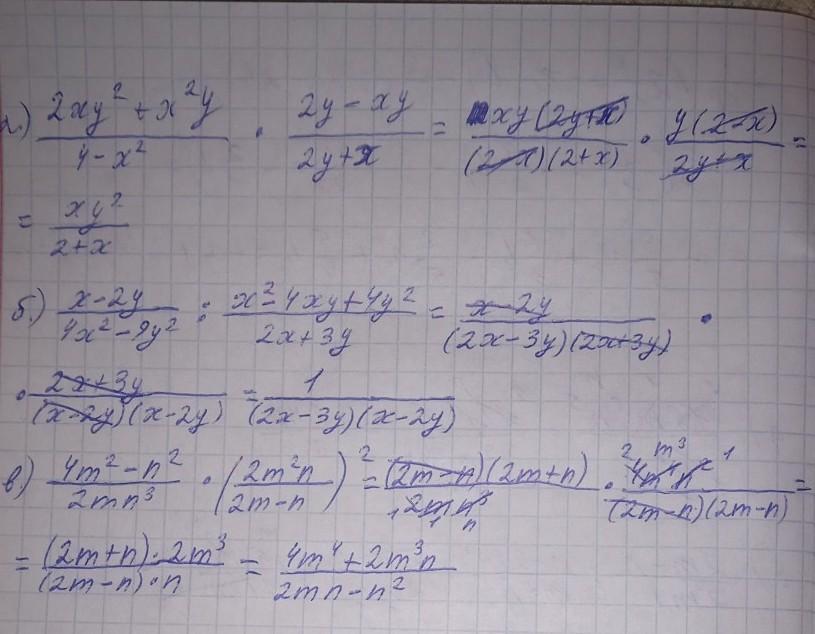 а.) (2xy² + x²y)/(4 - x²) · (2y - xy)/(2y + x) = (xy(2y+x))/((2-x)(2+x)) · (y(2-x))/(2y+x) =
= (xy²)/(2+x)
б.) (x-2y)/(4x²-9y²) : (x²-4xy+4y²)/(2x+3y) = (x-2y)/((2x-3y)(2x+3y)) ·
· (2x+3y)/((x-2y)(x-2y)) = 1/((2x-3y)(x-2y))
в) (4m²-n²)/(2mn³) · ((2m²n)/(2m-n))² = ((2m-n)(2m+n))/(2mn³) · (4m⁴n²)/((2m-n)(2m-n)) =
= ((2m+n)·2m³)/((2m-n)·n) = (4m⁴+2m³n)/(2mn-n²)